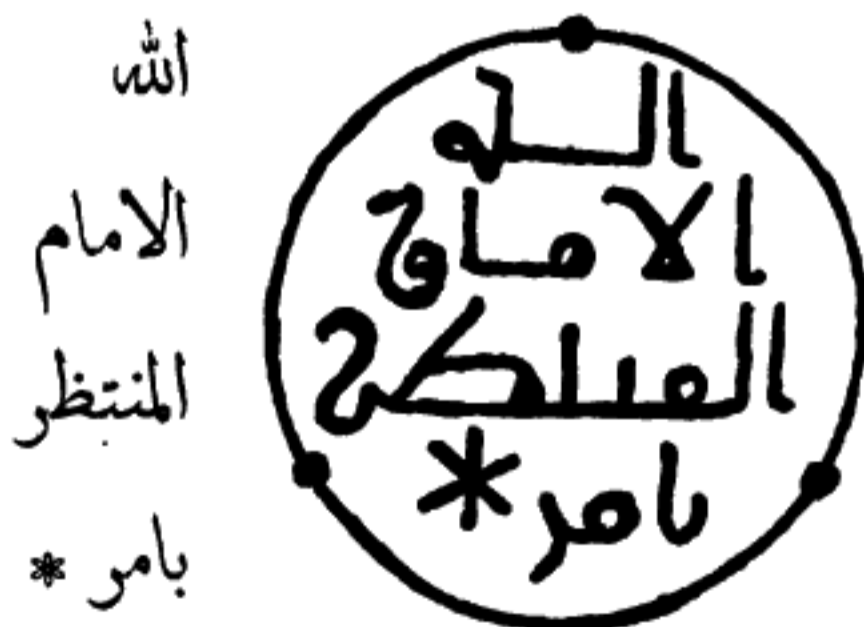 الله
الامام
المنتظر
بامر *
الله
الامام
المنتظر
بامر *